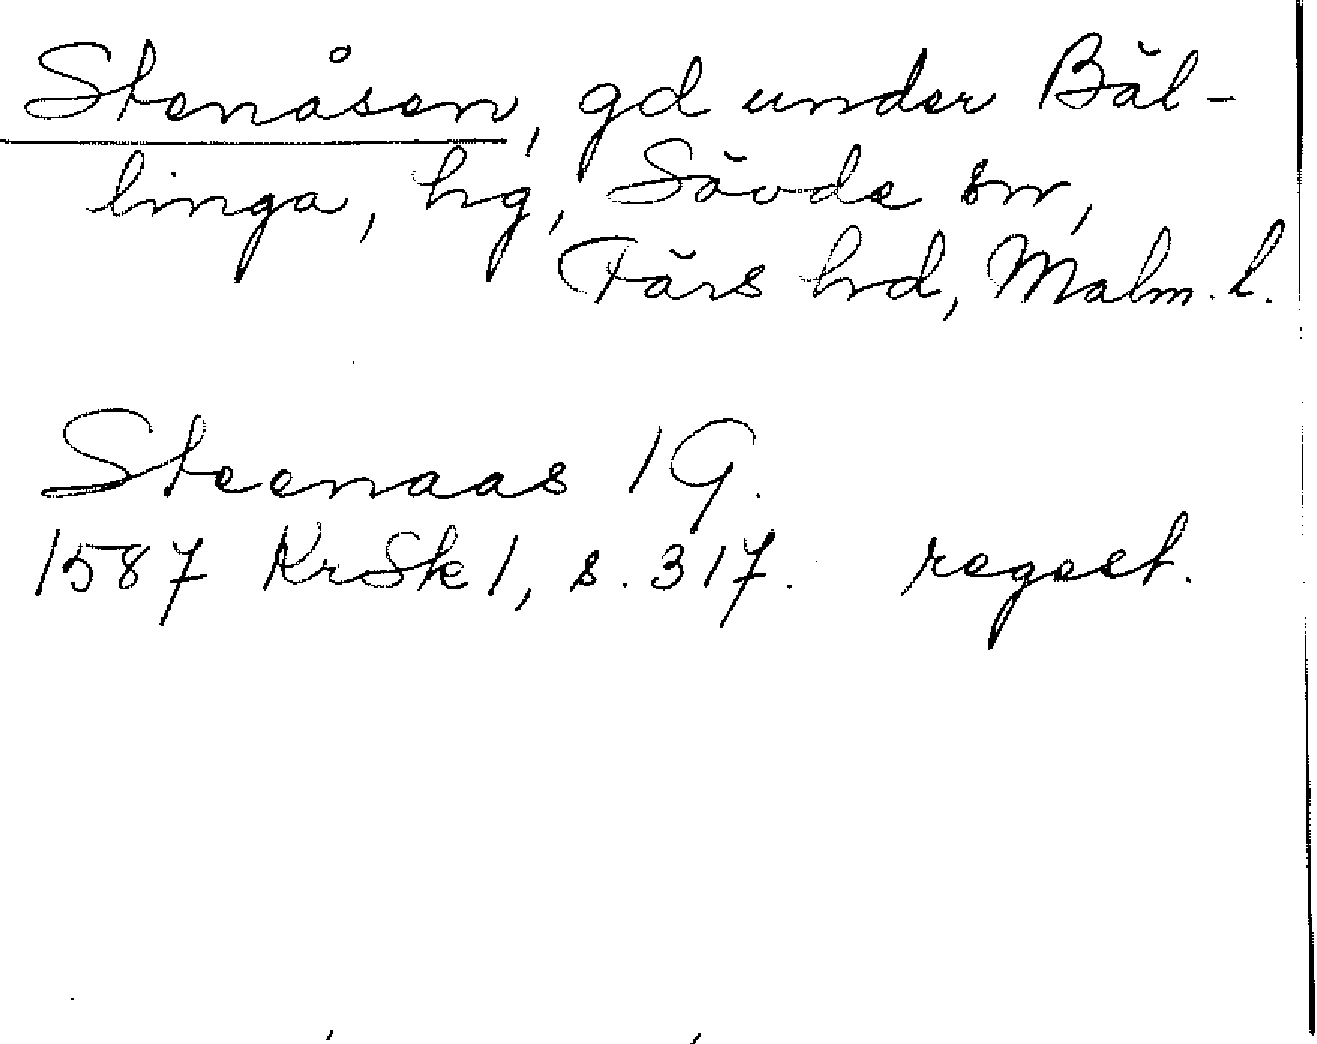 Stenåsen, gd under Bäl-
linga, hg, Sövde sn,
Färs hrd, Malm. l.
Steenaas 1 G.
1587 KrSk 1, s. 317. regest.